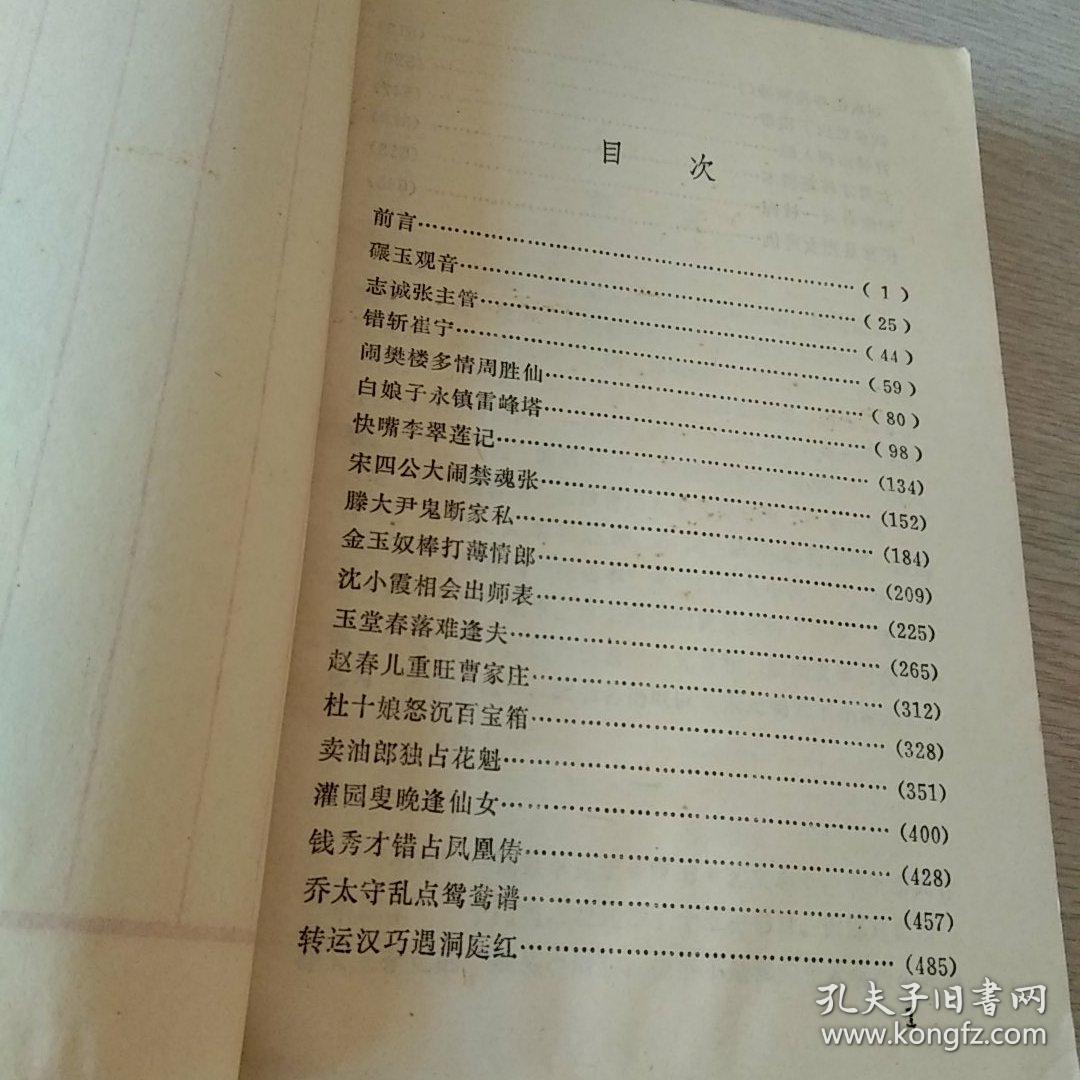 目 次
前言……(1)
碾玉观音……(25)
志诚张主管……(44)
错斩崔宁……(59)
闹樊楼多情周胜仙……(80)
白娘子永镇雷峰塔……(98)
快嘴李翠莲记……(134)
宋四公大闹禁魂张……(152)
滕大尹鬼断家私……(184)
金玉奴棒打薄情郎……(209)
沈小霞相会出师表……(225)
玉堂春落难逢夫……(265)
赵春儿重旺曹家庄……(312)
杜十娘怒沉百宝箱……(328)
卖油郎独占花魁……(351)
灌园叟晚逢仙女……(400)
钱秀才错占凤凰俦……(428)
乔太守乱点鸳鸯谱……(457)
转运汉巧遇洞庭红……(485)
1
孔夫子旧書网
www.kongfz.com